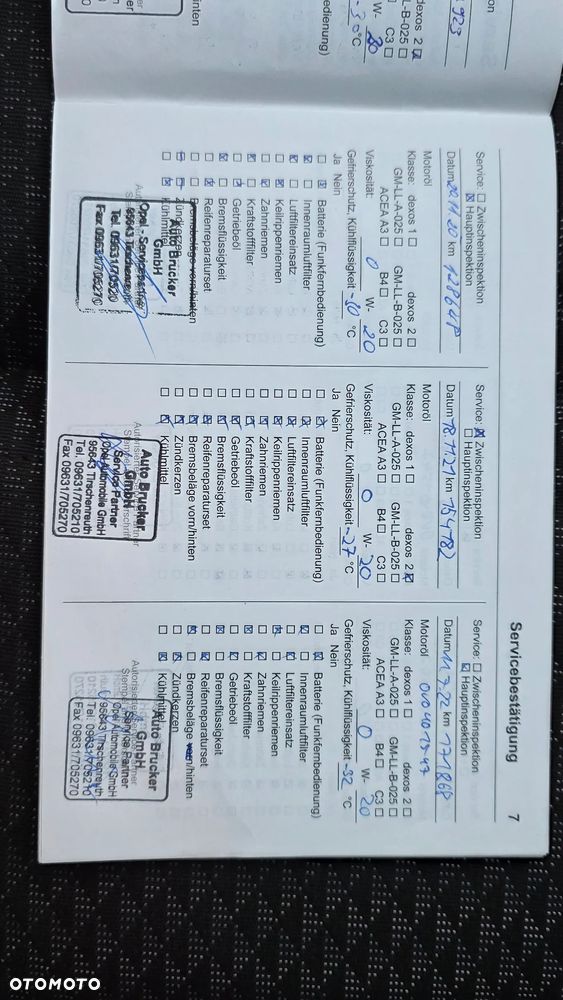 Servicebestätigung
7
Service: ☐ Zwischeninspektion
☒ Hauptinspektion
Datum 11.7.22 km 171868
Motoröl OVO401547
Klasse: dexos 1 ☐ dexos 2 ☐
GM-LL-A-025 ☐ GM-LL-B-025 ☐
ACEA A3 ☐ B4 ☐ C3 ☐
Viskosität: 0 W- 20
Gefrierschutz, Kühlflüssigkeit -32 °C
Ja Nein
☐ ☒ Batterie (Funkfernbedienung)
☒ ☐ Innenraumluftfilter
☐ ☒ Luftfiltereinsatz
☒ ☐ Keilrippenriemen
☐ ☒ Zahnriemen
☐ ☒ Kraftstofffilter
☐ ☒ Getriebeöl
☐ ☒ Bremsflüssigkeit
☐ ☒ Reifenreparaturset
☒ ☐ Bremsbeläge vorn/hinten
☐ ☒ Zündkerzen
☐ ☒ Kühlmittel
Auto Brucker
GmbH
Service Partner
Opel Automobile GmbH
95643 Tirschenreuth
Tel. 09631/705210
Fax 09631/705270
Service: ☒ Zwischeninspektion
☐ Hauptinspektion
Datum 18.11.21 km 154182
Motoröl
Klasse: dexos 1 ☐ dexos 2 ☒
GM-LL-A-025 ☐ GM-LL-B-025 ☐
ACEA A3 ☐ B4 ☐ C3 ☐
Viskosität: 0 W- 20
Gefrierschutz, Kühlflüssigkeit -27 °C
Ja Nein
☐ ☒ Batterie (Funkfernbedienung)
☐ ☒ Innenraumluftfilter
☐ ☒ Luftfiltereinsatz
☐ ☒ Keilrippenriemen
☐ ☒ Zahnriemen
☐ ☒ Kraftstofffilter
☐ ☒ Getriebeöl
☐ ☒ Bremsflüssigkeit
☐ ☒ Reifenreparaturset
☐ ☒ Bremsbeläge vorn/hinten
☐ ☒ Zündkerzen
☐ ☒ Kühlmittel
Auto Brucker
GmbH
Service Partner
Opel Automobile GmbH
95643 Tirschenreuth
Tel. 09631/705210
Fax 09631/705270
Service: ☐ Zwischeninspektion
☒ Hauptinspektion
km
Motoröl
Klasse: dexos 1 ☐ dexos 2 ☐
GM-LL-A-025 ☐ GM-LL-B-025 ☐
ACEA A3 ☐ B4 ☐ C3 ☐
Viskosität: 0 W- 20
Gefrierschutz, Kühlflüssigkeit -30 °C
Ja Nein
☐ ☒ Batterie (Funkfernbedienung)
☒ ☐ Innenraumluftfilter
☒ Luftfiltereinsatz
☐ ☒ Keilrippenriemen
☐ ☒ Zahnriemen
☒ Kraftstofffilter
☐ ☒ Getriebeöl
☒ ☐ Bremsflüssigkeit
☐ ☒ Reifenreparaturset
Bremsbeläge vorn/hinten
Zündkerzen
☐ ☒ Kühlmittel
Auto Brucker
GmbH
Opel - Servicepartner
95643 Tirschenreuth
Tel. 09631/705210
Fax 09631/705270
923
dexos 2
LL-B-025 ☐
C3 ☐
W- 20
-30 °C
dienung)
inten
OTOMOTO